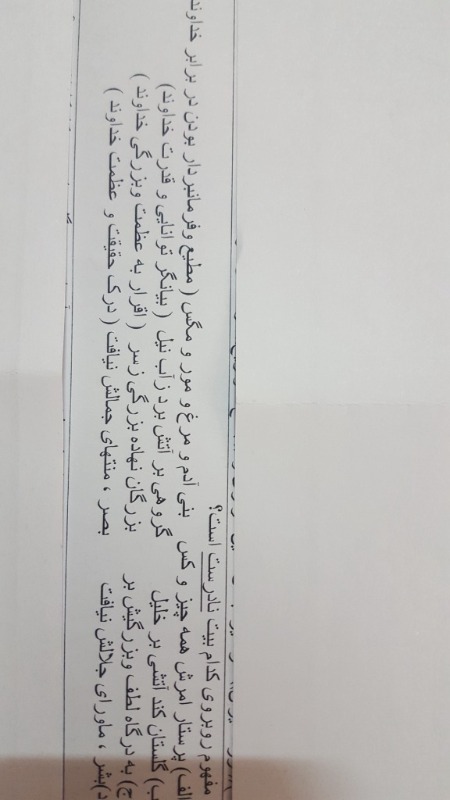 مفهوم روبروی کدام بیت نادرست است؟
الف) پرستار امرش همه چیز و کس بنی آدم و مرغ و مور و مگس ( مطیع و فرمانبردار بودن در برابر خداوند
ب) گلستان کند آتشی بر خلیل گروهی بر آتش برد ز آب نیل ( بیانگر توانایی و قدرت خداوند)
ج) به درگاه لطف و بزرگیش بر بزرگان نهاده بزرگی ز سر ( اقرار به عظمت و بزرگی خداوند )
د) بشر ، ماورای جلالش نیافت بصر ، منتهای جمالش نیافت ( درک حقیقت و عظمت خداوند )